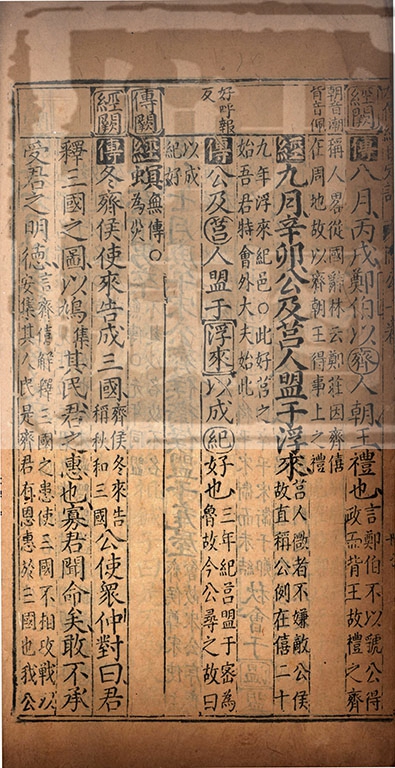 經闕
傳八月丙戌鄭伯以齊人朝王禮也言鄭伯不以虢公得
政而背王故禮之齊
朝音潮
背音佩
稱人畧從國辭林云鄭莊因齊僖
在周地故以齊朝王得事上之禮
經九月辛卯公及莒人盟于浮來莒人微者不嫌敵公侯
故直稱公例在僖二十
九年浮來紀邑○此好莒之
始吾君特會外大夫始此
好呼報
反
傳公及莒人盟于浮來以成紀好也三年紀莒盟于密為
魯故今公尋之故曰
以成
紀好
傳闕
經螟無傳○
為災
經闕
傳冬齊侯使來告成三國齊侯冬來告
稱秋和三國公使眾仲對曰君
釋三國之圖以鳩集其民君之惠也寡君聞命矣敢不承
受君之明德言齊僖解釋三國之患使三國不相攻戰以
安集其人民是齊君有恩惠於三國也我公